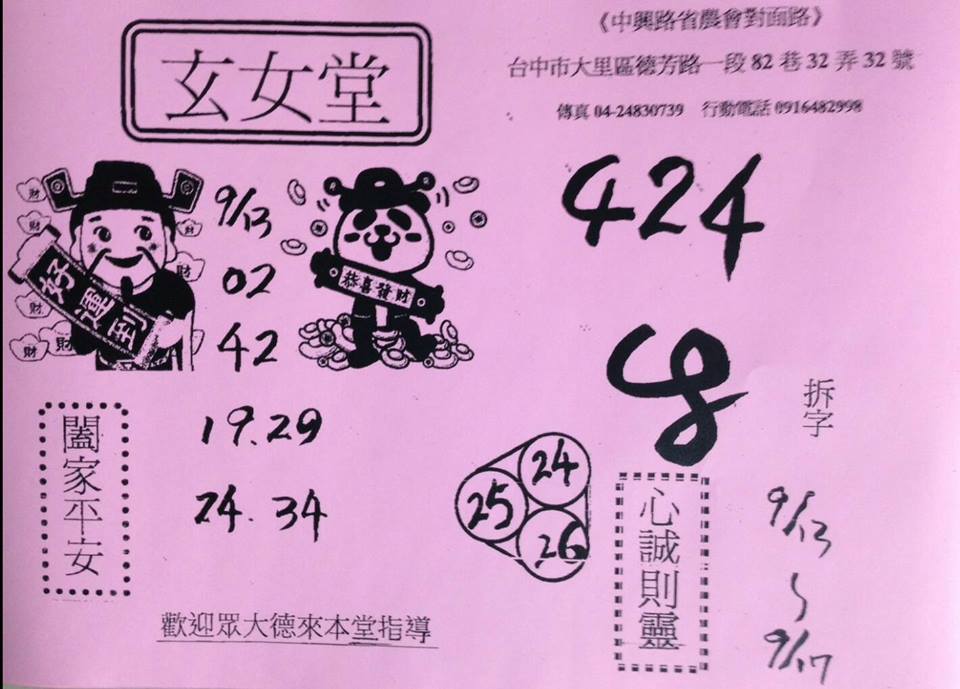 《中興路省農會對面路》
玄女堂
台中市大里區德芳路一段 82 巷 32 弄 32 號
傳真 04-24830739 行動電話 0916482998
財
財
財
財
財
財
財
財
好運到
9/13
02
42
恭喜發財
424
拆字
闔家平安
19.29
24.34
24
25
26
心誠則靈
9/13
~
9/17
歡迎眾大德來本堂指導